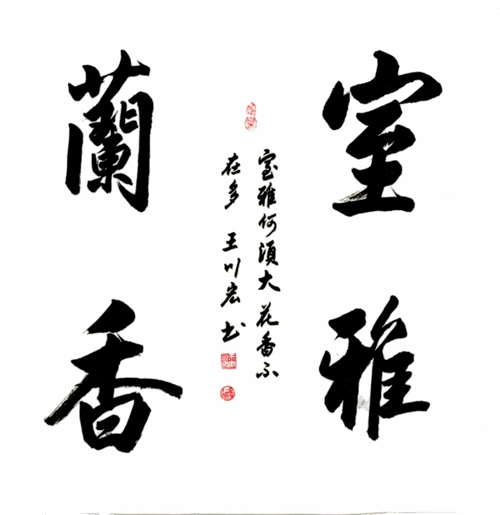 室雅
蘭香
室雅何須大花香不
在多 王川宏书